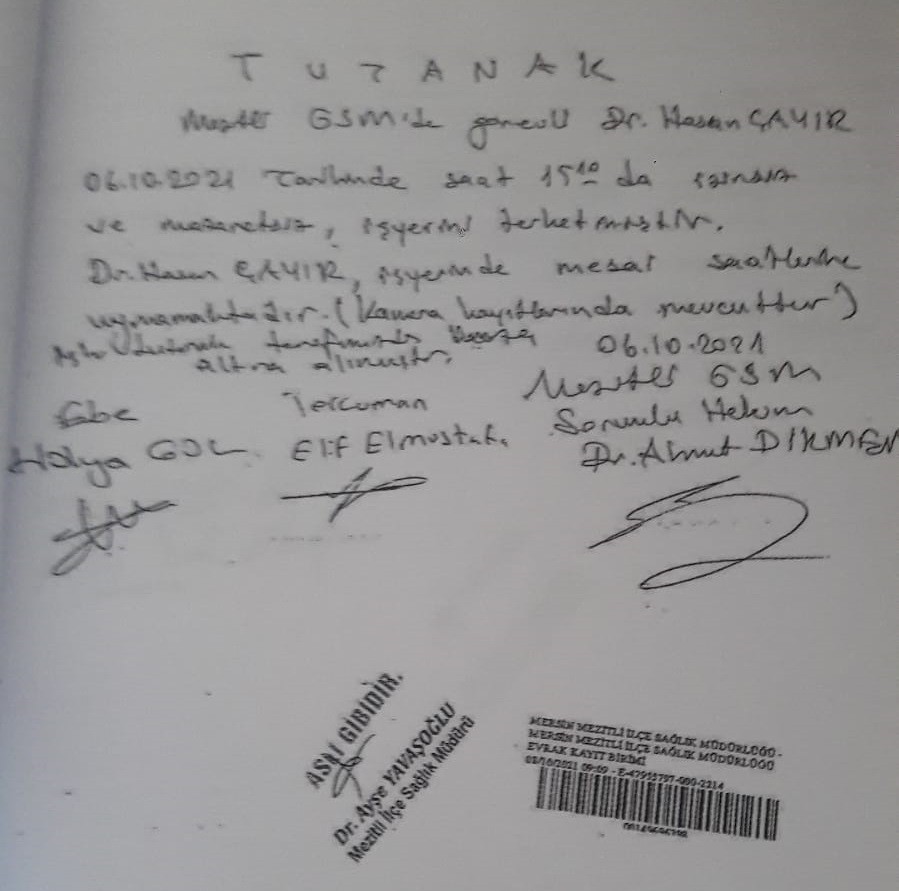 TUTANAK
GSM'de görevli Dr. Hasan ÇAYIR
06.10.2021 Tarihinde saat 15¹⁰ da izinsiz
ve mazeretsiz, işyerini terketmiştir.
Dr. Hasan ÇAYIR, işyerinde mesai saatlerine
uymamaktadır. (Kamera kayıtlarında mevcuttur)
tutanak tarafımızdan imza 06.10.2021
altına alınmıştır.
GSM
Ebe Tercüman Sorumlu Hekim
Hülya GÜL Elif Elmustafa Dr. Ahmet DİKMEN
ASLI GİBİDİR.
Dr. Ayşe YAVAŞOĞLU
Mezitli İlçe Sağlık Müdürü
MERSİN MEZİTLİ İLÇE SAĞLIK MÜDÜRLÜĞÜ -
MERSİN MEZİTLİ İLÇE SAĞLIK MÜDÜRLÜĞÜ
EVRAK KAYIT BİRİMİ
08/10/2021 09:09 - E-47915797-000-2214